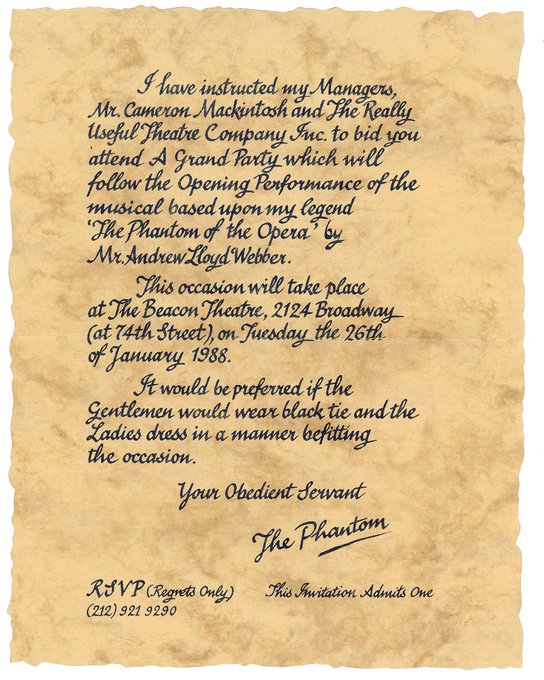 I have instructed my Managers,
Mr. Cameron Mackintosh and The Really
Useful Theatre Company Inc. to bid you
attend A Grand Party which will
follow the Opening Performance of the
musical based upon my legend
'The Phantom of the Opera' by
Mr. Andrew Lloyd Webber.
This occasion will take place
at The Beacon Theatre, 2124 Broadway
(at 74th Street), on Tuesday the 26th
of January 1988.
It would be preferred if the
Gentlemen would wear black tie and the
Ladies dress in a manner befitting
the occasion.
Your Obedient Servant
The Phantom
RSVP (Regrets Only) This Invitation Admits One
(212) 921 9290